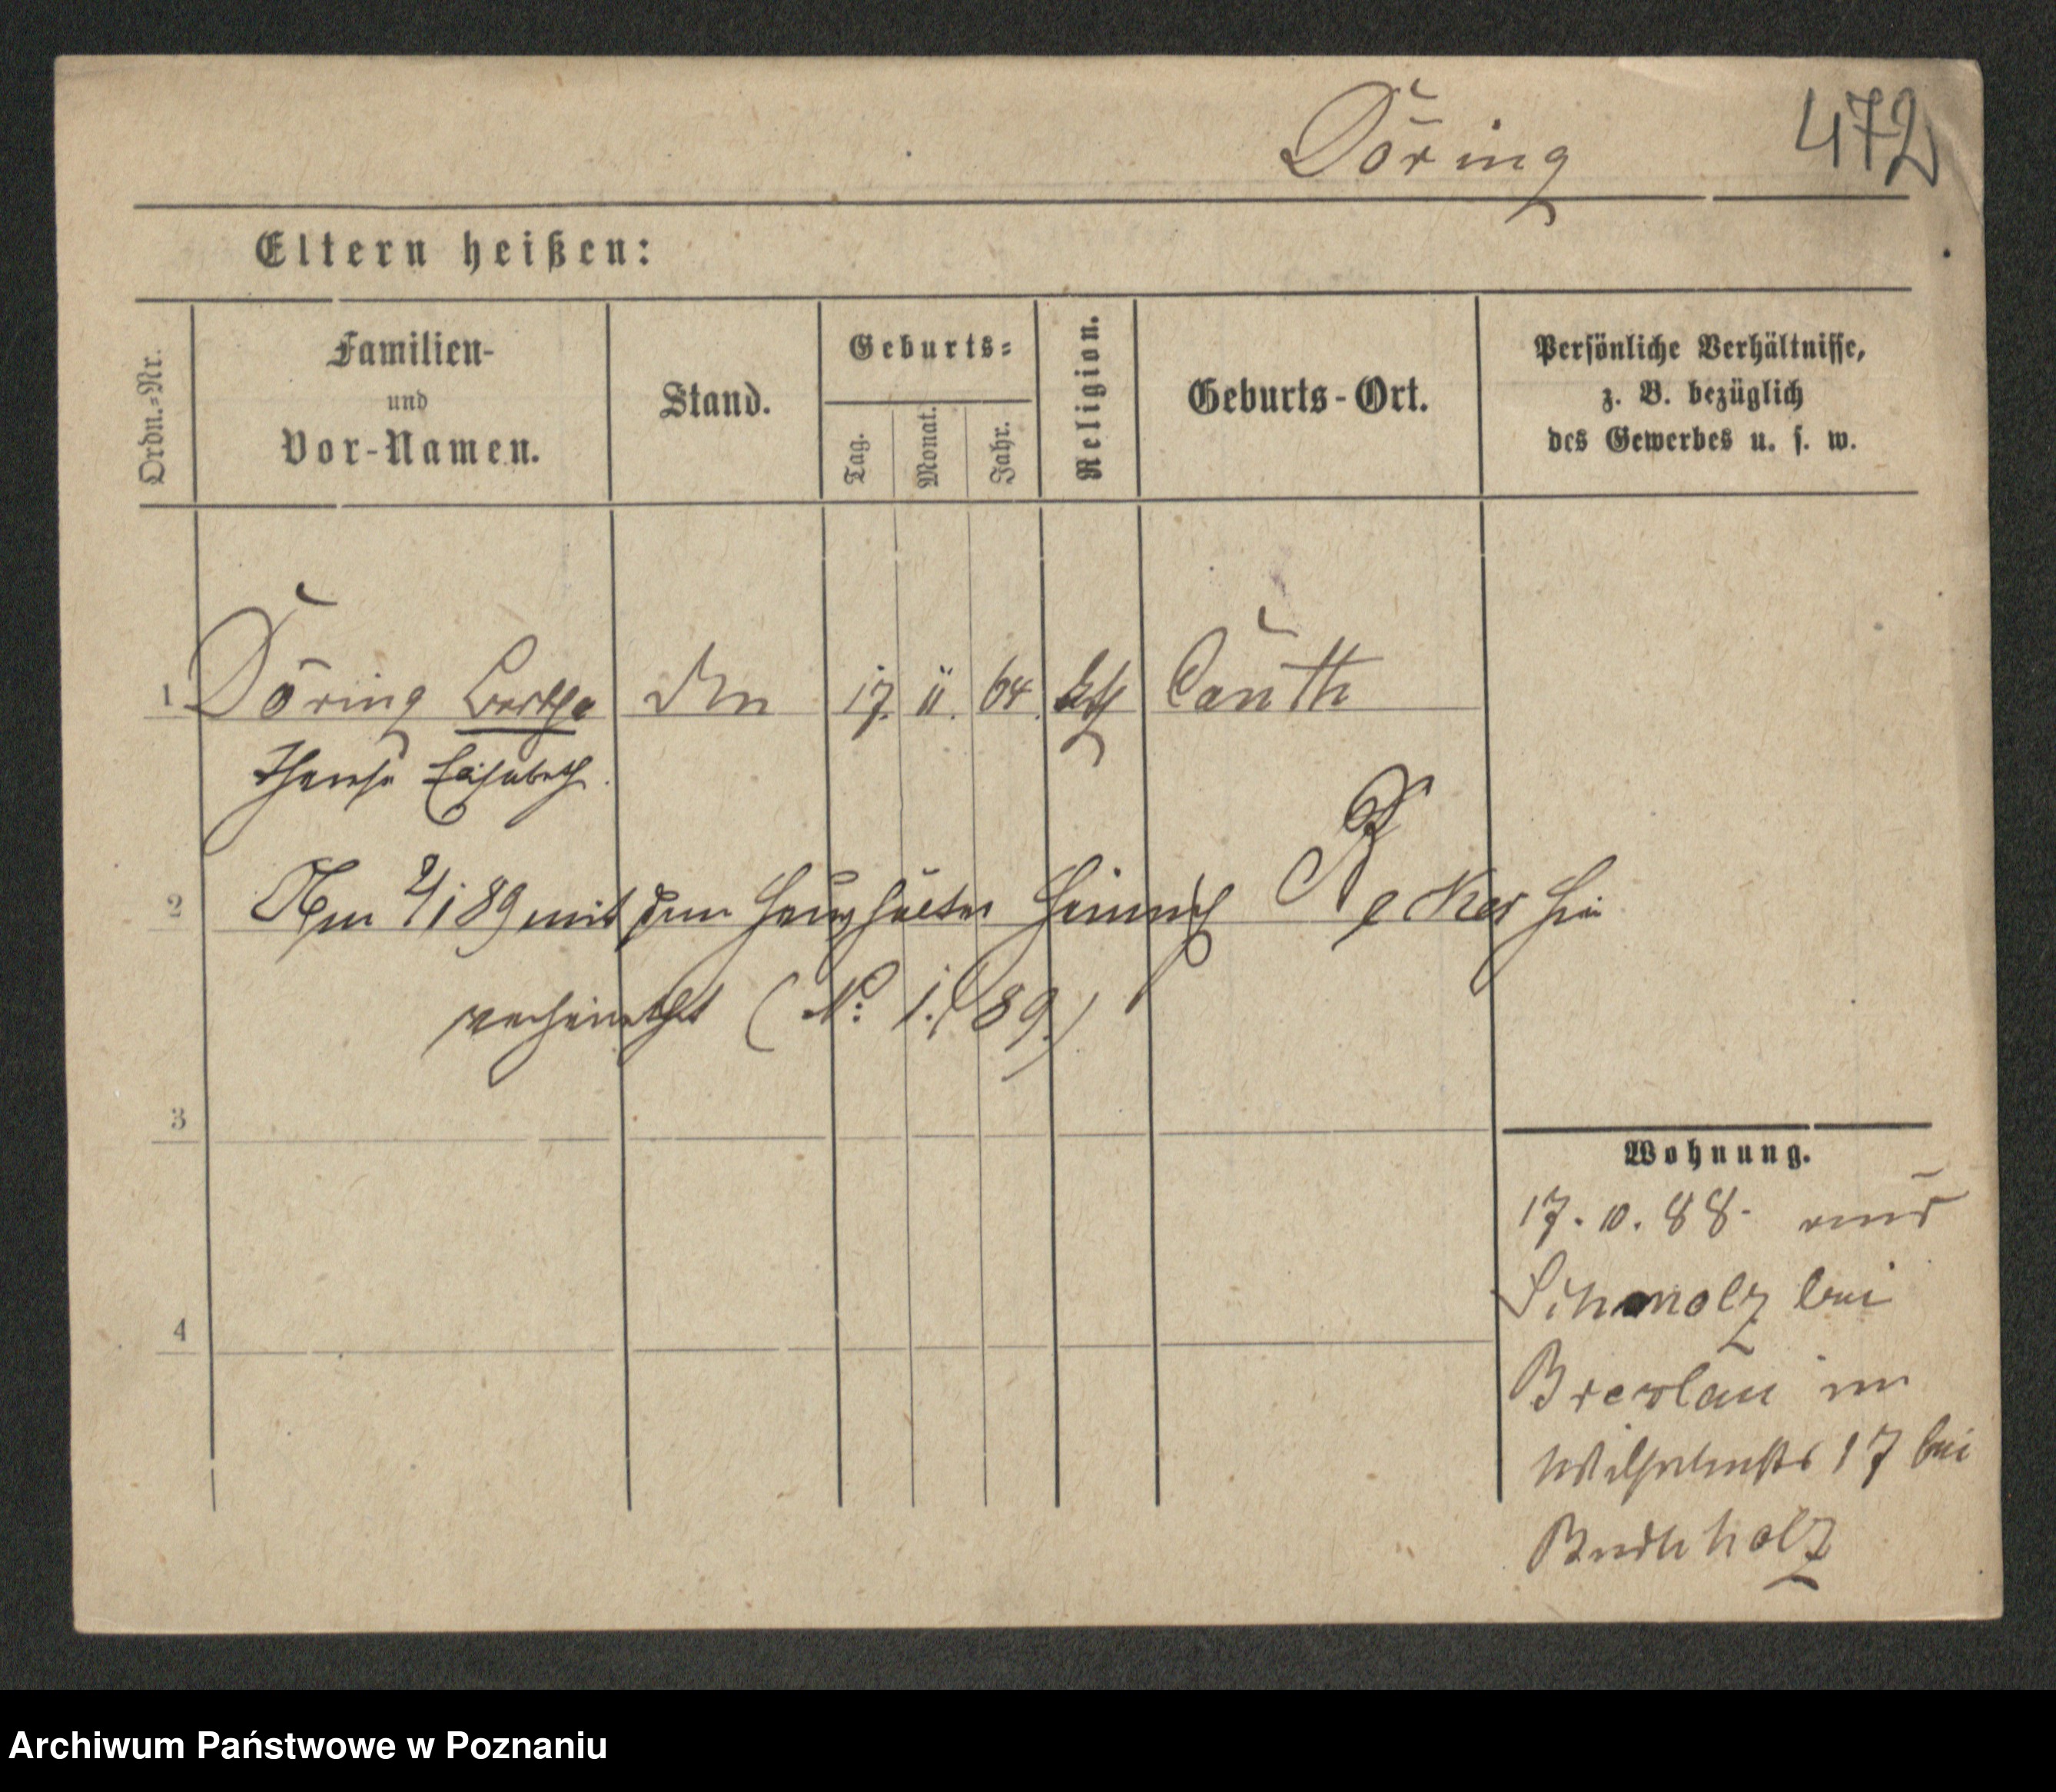 Döring 472
Eltern heißen:
Ordn.-Nr.
Familien-
und
Vor-Namen.
Stand.
Geburts-
Tag.
Monat.
Jahr.
Religion.
Geburts-Ort.
Persönliche Verhältnisse,
z. B. bezüglich
des Gewerbes u. s. w.
1 Döring Bertha 17. 11. 64. kth Canth
Elisabeth.
2 Am 2/1 89 mit dem Haushälter Heinrich hier
verheirathet (No: 1./89.)
3
4
Wohnung.
17. 10. 88. aus
Schmolz bei
Breslau in
Wilhelmstr 17 bei
Buchholz
Archiwum Państwowe w Poznaniu